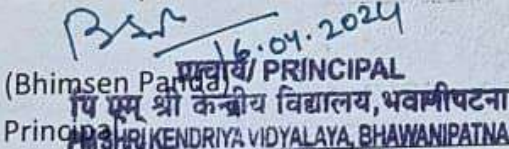 16.04.2024
(Bhimsen Panda)
प्राचार्य/ PRINCIPAL
पि एम् श्री केन्द्रीय विद्यालय, भवानीपटना
Principal
PM SHRI KENDRIYA VIDYALAYA, BHAWANIPATNA